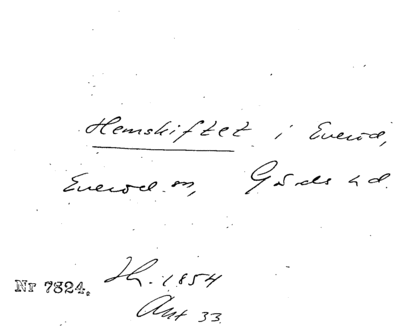 Hemskiftet i Everöd,
Everöd sn, Gärds hd.
Nr 7824. Th. 1854
Ant 33